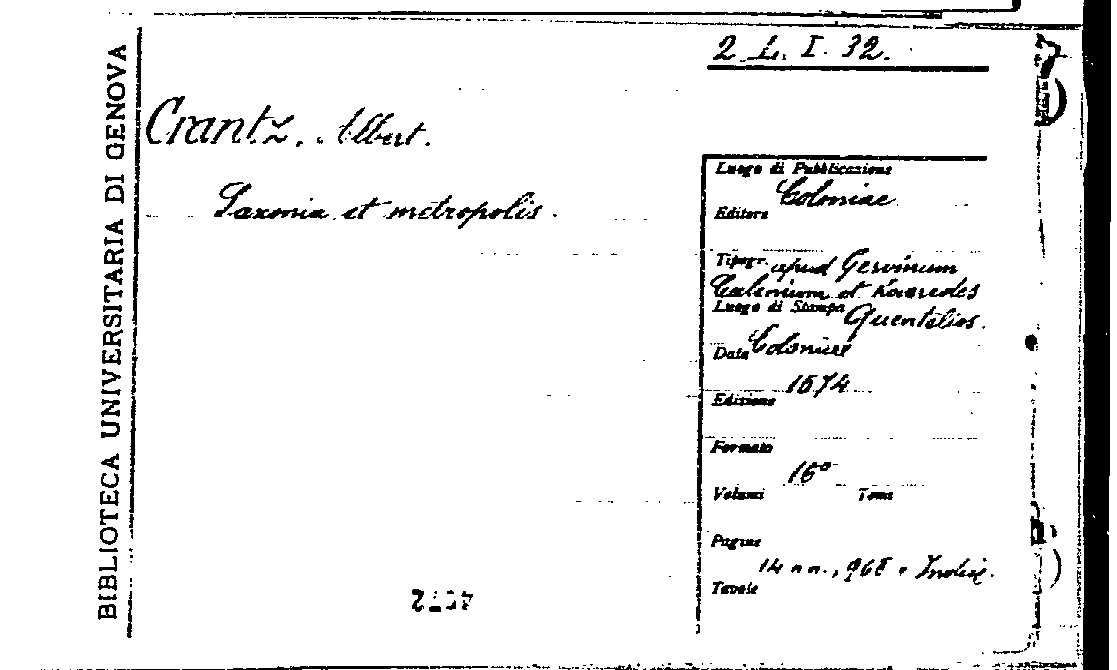 BIBLIOTECA UNIVERSITARIA DI GENOVA
2 L. I. 32.
Crantz, Albert.
Saxonia et metropolis.
Luogo di Pubblicazione
Coloniae
Editore
Tipogr. apud Gervinum
Calenium et haeredes
Luogo di Stampa Quentelios.
Data Coloniae
1574
Edizione
Formato
16°
Volumi Tomi
Pagine
14 nn., 968 + Indice.
Tavole